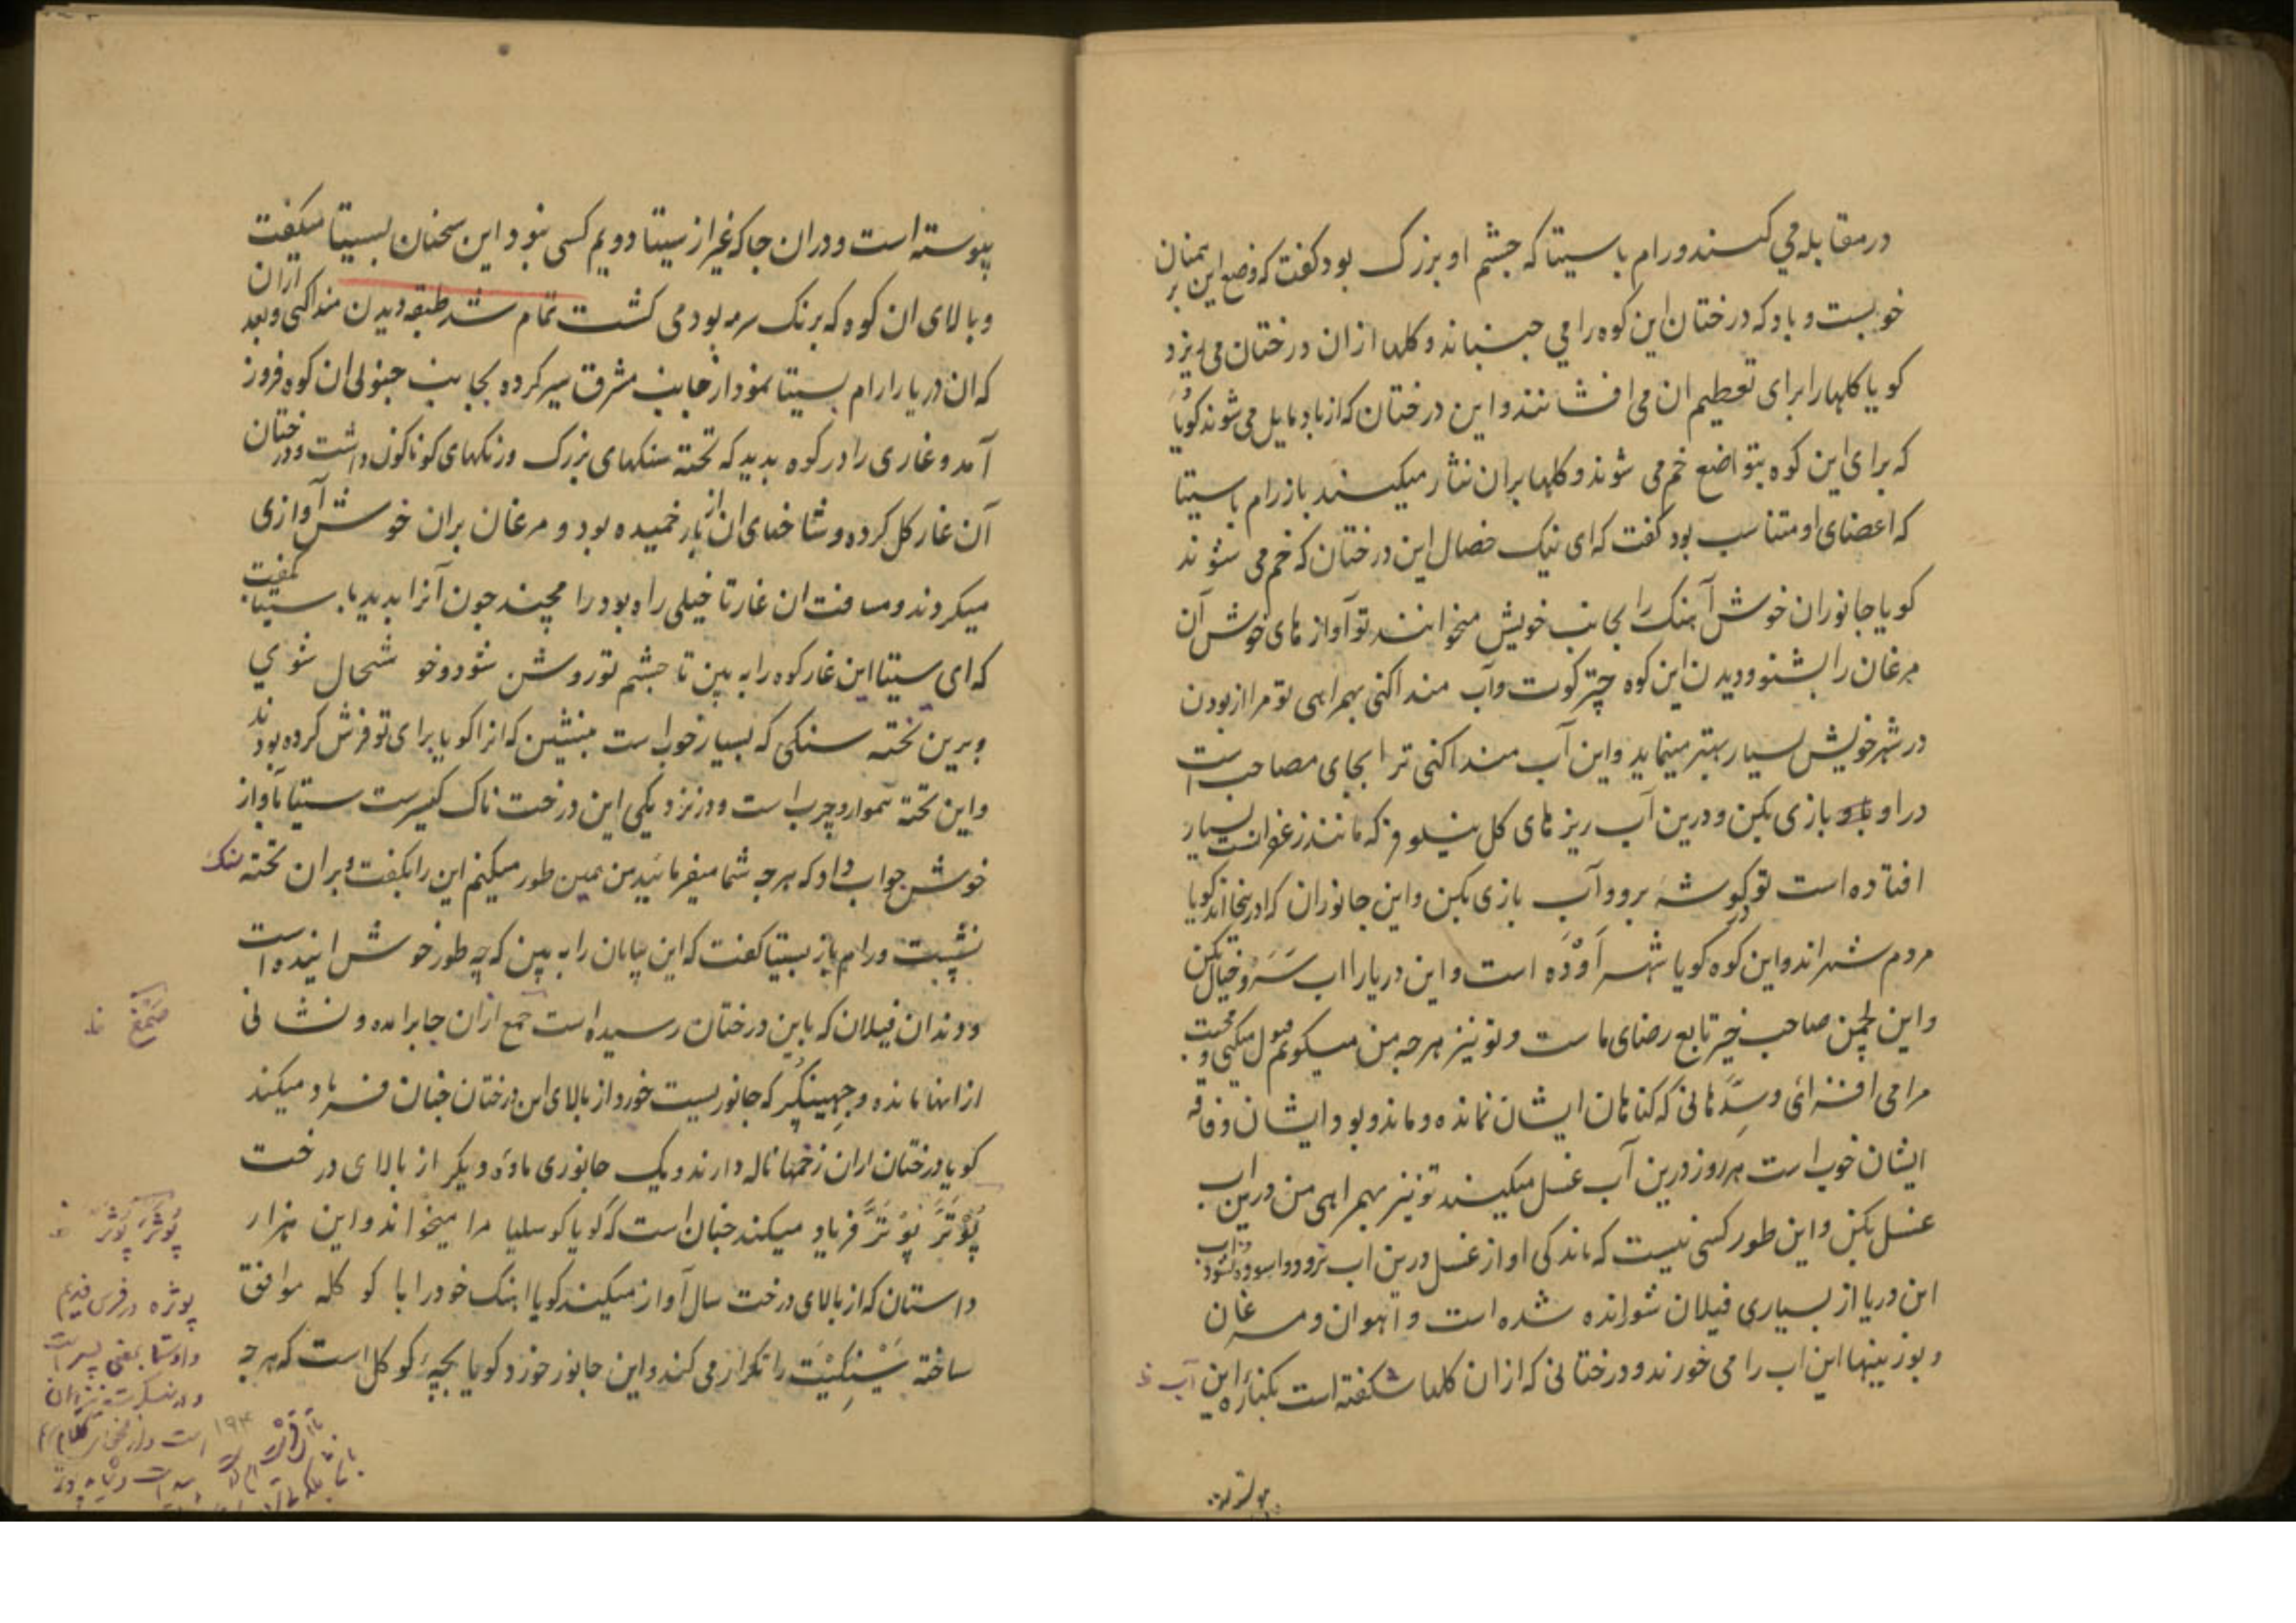 در مقابله می کنند و رام با سیتا که چشم او بزرک بود کفت که وضع این بر همنان
خوبست و باد که درختان این کوه را می جنباند و کلها از ان درختان می ریزد
کویا کلها را برای تعظیم ان می افشانند و این درختان که از باد مایل می شوند کویا
که برای این کوه بتواضع خم می شوند و کلها بران نثار میکنند باز رام با سیتا
که اعضای او متناسب بود کفت که ای نیک خصال این درختان که خم می شوند
کویا جانوران خوش آهنک را بجانب خویش میخوانند تو آواز های خوش آن
مرغان را بشنو و دیدن این کوه چترکوت و آب منداکنی بهمراهی تو مرا از بودن
در شهر خویش بسیار بهتر مینماید و این آب منداکنی ترا بجای مصاحب است
در او بازی بکن و درین آب ریزهای کل نیلوفر که مانند زعفرانست بسیار
افتاده است تو در کوشه برو و آب بازی بکن و این جانوران که در اینجا اند کویا
مردم شهر اند و این کوه کویا شهر اَوْدَه است و این دریا را اب سَرَو خیال بکن
و این لچمن صاحب خیر تابع رضای ماست و تو نیز هرچه من میکویم قبول میکنی و محبت
مرا می افزائی و سِدّهانی که کناهان ایشان نمانده و ماند و بود ایشان و فاقه
ایشان خوب است هر روز درین آب غسل میکنند تو نیز بهمراهی من درین اب
غسل بکن و این طور کسی نیست که ماندکی او از غسل درین اب نرود و اسوده نشود
این دریا از بسیاری فیلان شورانده شده است و آهوان و مرغان
و بوزینها این اب را می خورند و درختانی که از ان کلها شکفته است بکناره این آب
پیوسته است و دران جا که غیر از سیتا دویم کسی نبود این سخنان بسیتا میکفت
و بالای ان کوه که برنک سرمه بود می کشت تمام شد طبقه دیدن منداکنی و بعد ازان
که ان دریا را رام بسیتا نمود از جانب مشرق سیر کرده بجانب جنوبی ان کوه فرود
آمد و غاری را در کوه بدید که تخته سنکهای بزرک و رنکهای کوناکون داشت و درختان
آن غار کل کرده و شاخهای ان از بار خمیده بود و مرغان بران خوش آوازی
میکردند و مسافت ان غار تا خیلی راه بود رامچند چون آنرا بدید با سیتا بکفت
که ای سیتا این غار کوه را به بین تا چشم تو روشن شود و خوشحال شوی
و برین تخته سنکی که بسیار خوب است بنشین که انرا کویا برای تو فرش کرده بودند
و این تخته هموار و چرب است و در نزدیکی این درخت ناک کیسرست سیتا بآواز
خوش جواب داد که هرچه شما میفرمائید من همین طور میکنم این را بکفت و بران تخته سنک
نشست و رام باز بسیتا کفت که این بیابان را به بین که چه طور خوش ایند است
و دندان فیلان که باین درختان رسیده است جمع ازان جا برامده و نشانی
از انها مانده و جهینکر که جانوریست خورد از بالای این درختان چنان فریاد میکند
کویا درختان ازان زخمها ناله دارند و یک جانوری ماده دیکر از بالای درخت
پُوْتَرَ پُوْتَرَ فریاد میکند چنان است که کویا کوسلیا مرا میخواند و این هزار
داستان که از بالای درخت سال آواز میکند کویا اهنک خود را با کوکله موافق
ساخته سَنْکِیْت را تکرار می کند و این جانور خورد کویا بچهٔ کوکل است که هرچه
صمغ
پُوتَرَ پُوتَرَ
پوژه در فرس قدیم
و اوستا بمعنی پسر است
و در سنسکرت نیز ان
۱۹۴